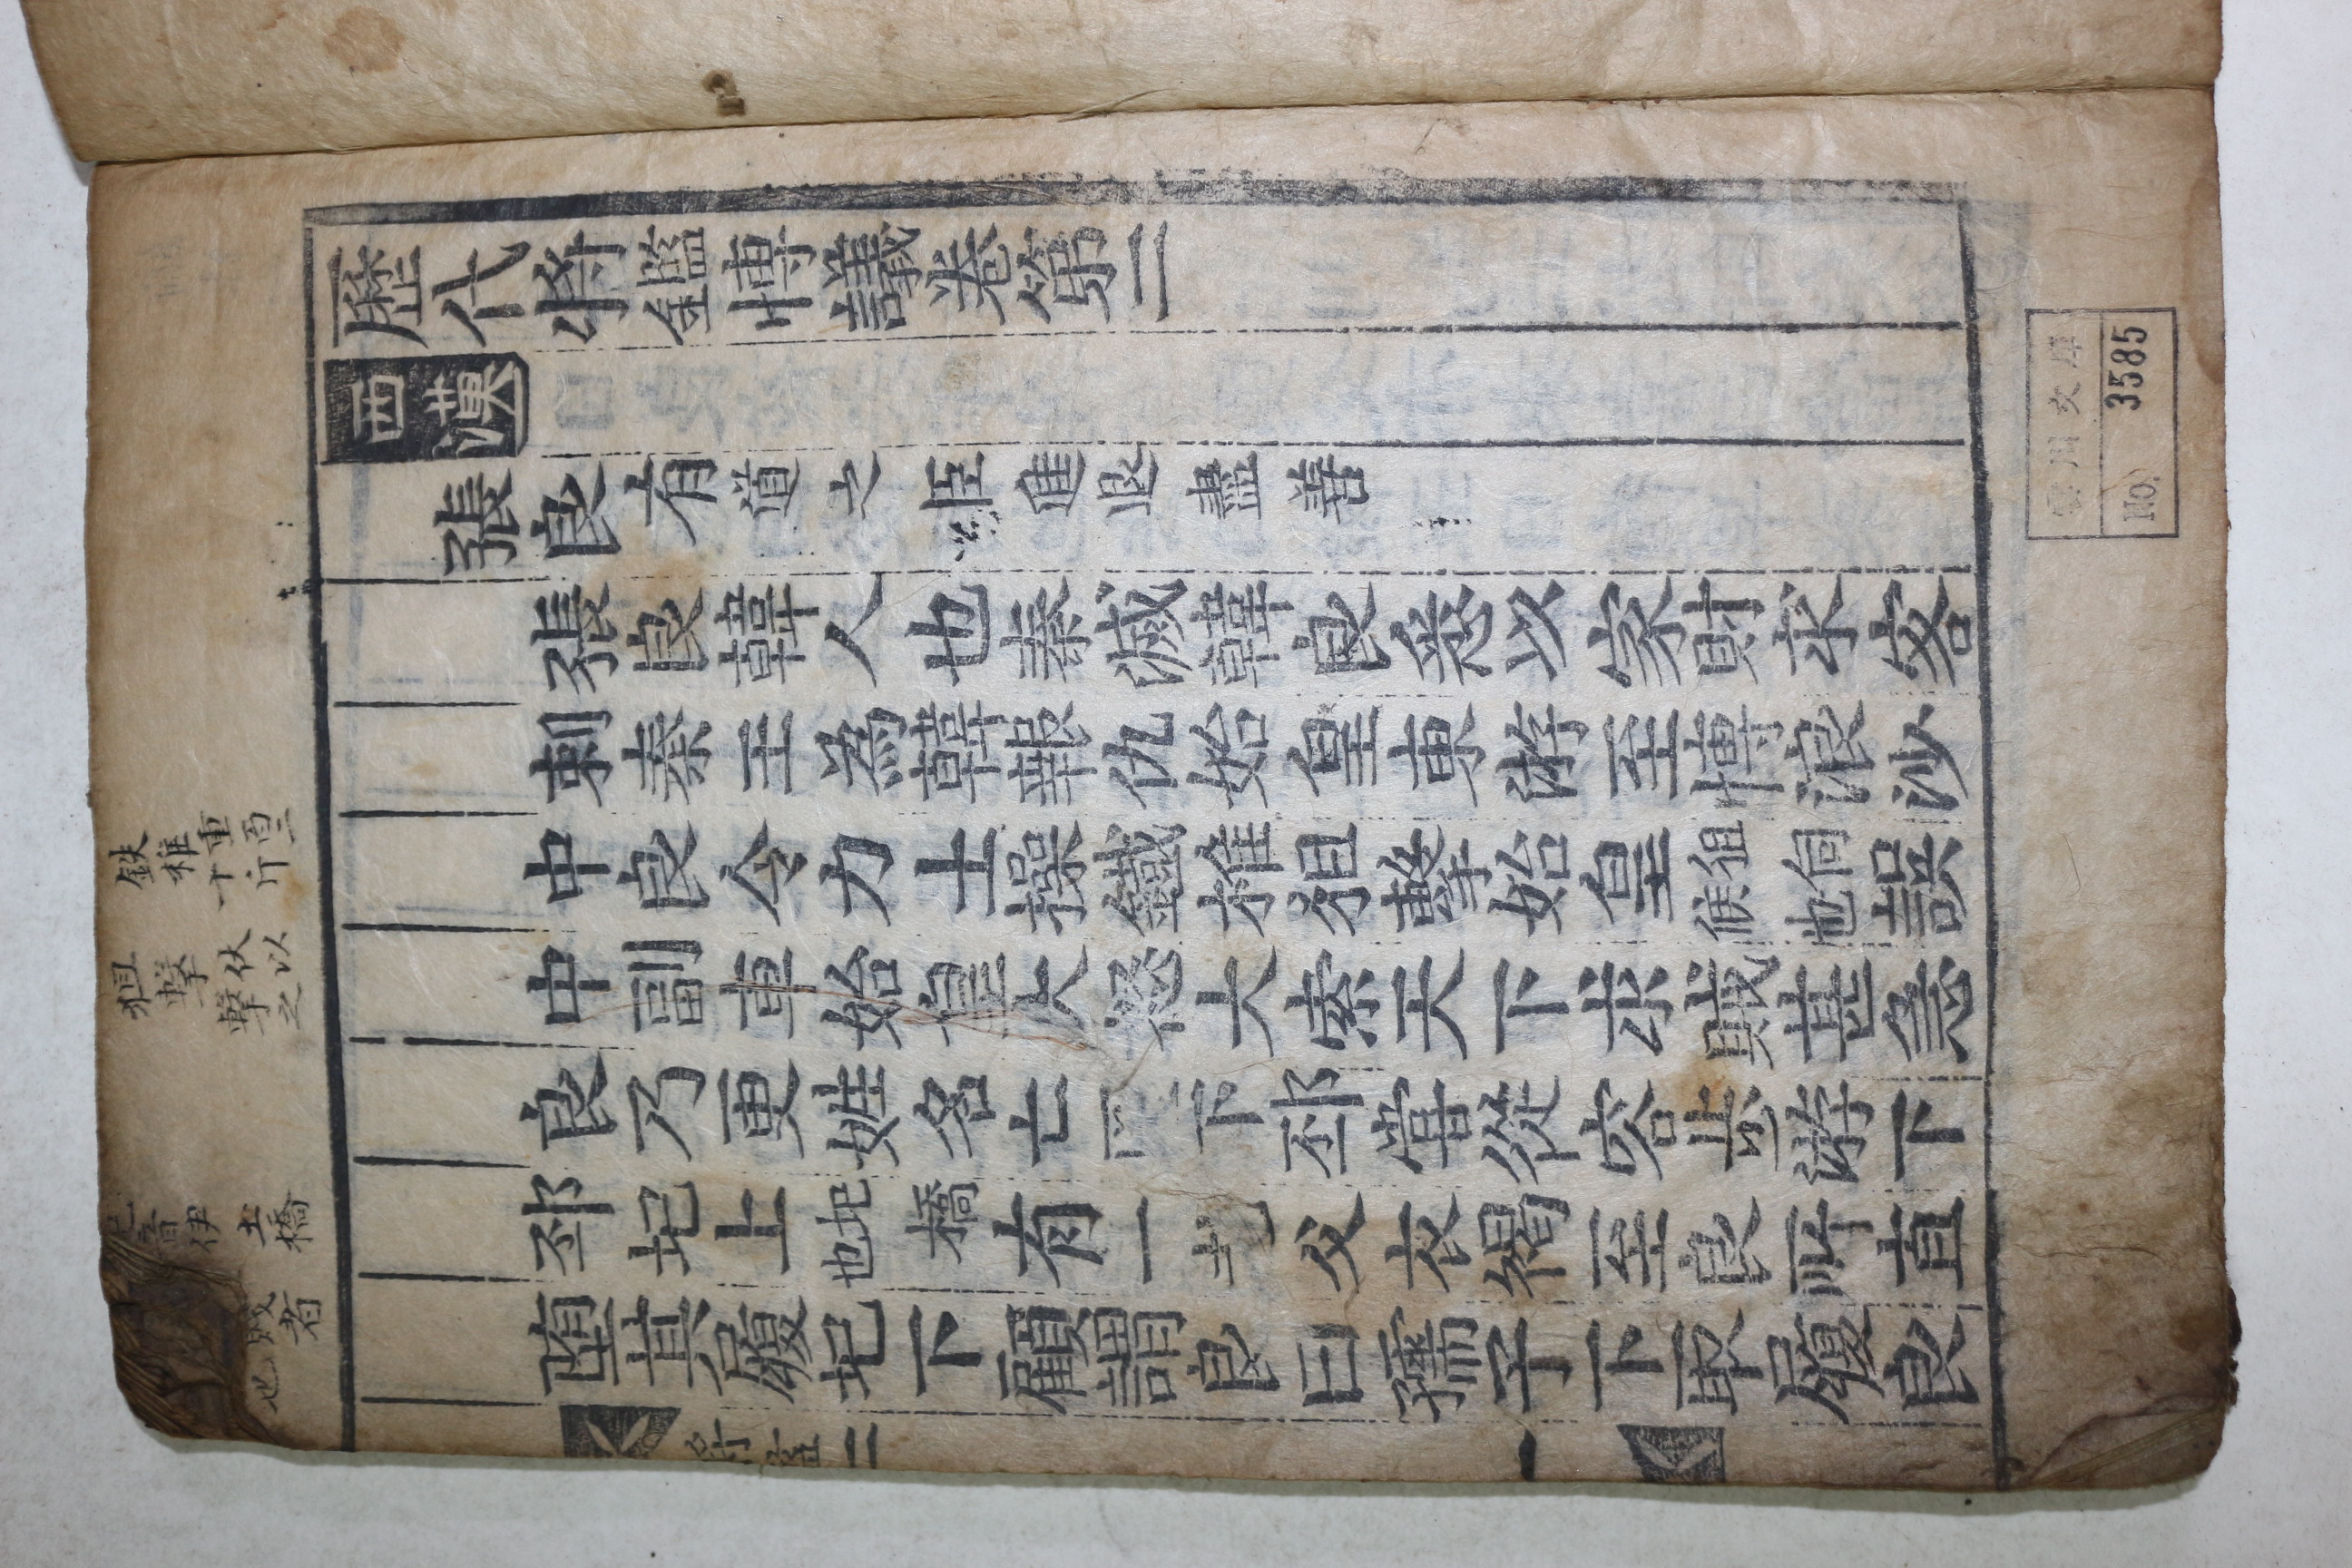 歷代將鑑博議卷第二
西漢
張良 有道之臣進退盡善
張良韓人也秦滅韓良悉以家財求客
刺秦王為韓報仇始皇東游至博浪沙
中良令力士操鐵椎狙擊始皇狙伺候也誤
中副車始皇大怒大索天下求賊甚急
良乃更姓名亡匿下邳嘗從容步游下
邳圯上圯橋也有一老父衣褐至良所直
堕其履圯下顧謂良曰孺子下取履良
將鑑二
一
鉄椎重百二十斤
狙擊伏以擊之
音伊土橋
者
也
雲川文庫
No. 3585